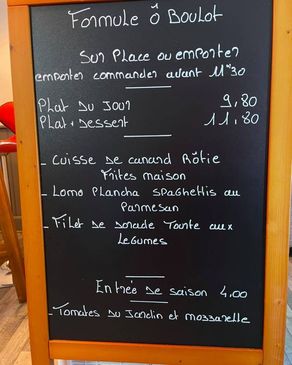 Formule Ô Boulot
Sur Place ou emporter
emporter commander avant 11°30
Plat Du Jour 9,80
Plat + Dessert 11,80
- Cuisse de canard Rôtie
Frites maison
- Lomo Plancha spaghettis au
Parmesan
- Filet de dorade Tourte aux
Legumes
Entrée de saison 4,00
- Tomates du Jardin et mozzarelle